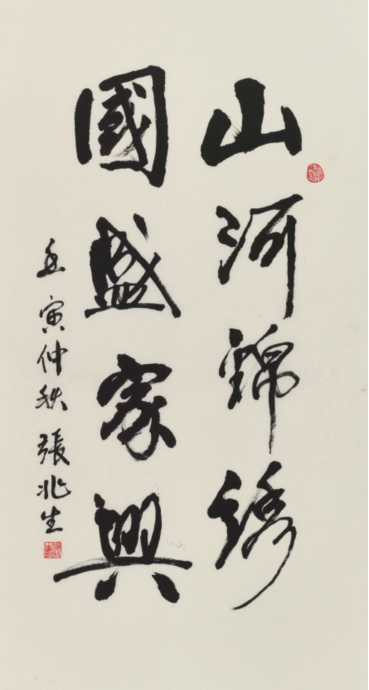 山河錦綉
國盛家興
壬寅仲秋 張兆生